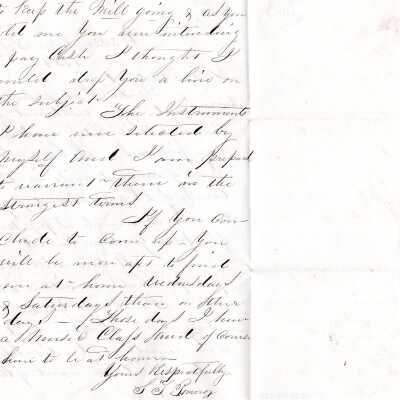 to keep the Mill going & as you
told me you were intending
to pay Cash I thought I
would drop you a line on
the subject
The Instruments
I have were selected by
Myself and I am prepared
to warrant them in the
strongest terms
If you con-
clude to come up - you
will be more apt to find
me at home Wednesdays
& Saturdays than on other
days - Those days I have
a Music Class and of course
have to be at home
Yours Respectfully